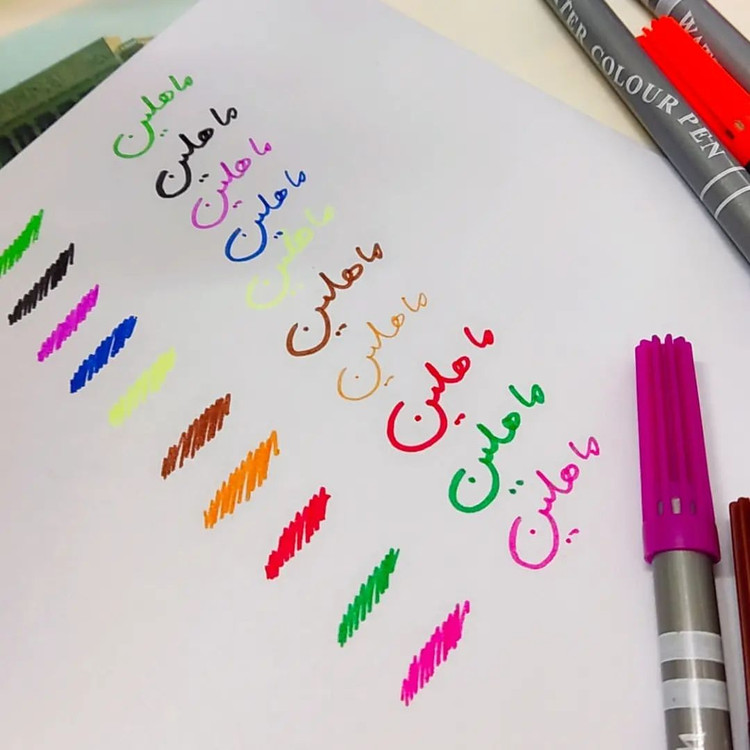 ماهلین
ماهلین
ماهلین
ماهلین
ماهلین
ماهلین
ماهلین
ماهلین
ماهلین
ماهلین
TER COLOUR PEN
WAT